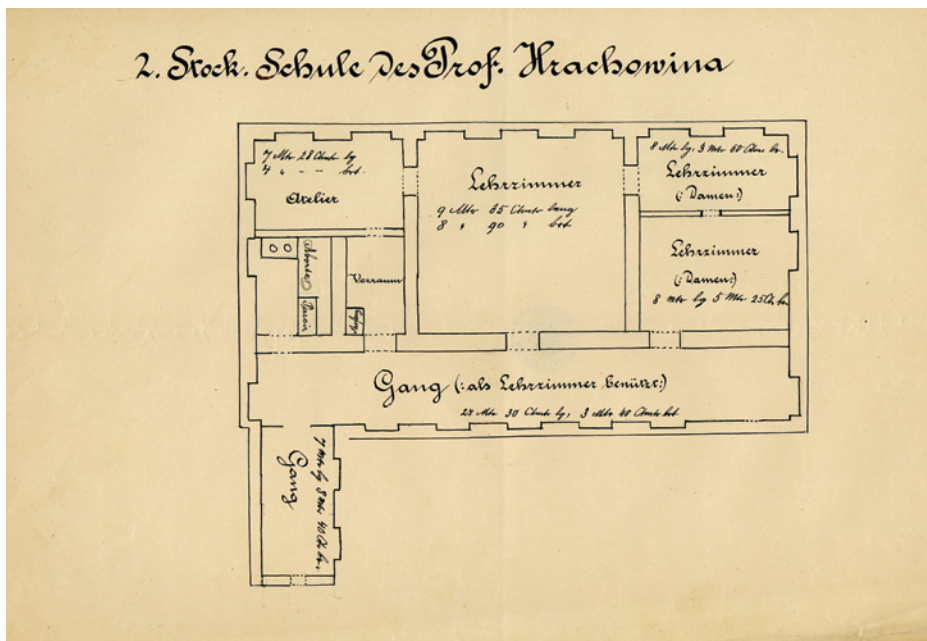 2. Stock. Schule des Prof. Hrachowina
7 Mtr 28 Ctmtr lg
4 " - - brt.
Atelier
Lehrzimmer
9 Mtr 35 Ctmtr lang
8 " 90 " brt
8 Mtr lg, 3 Mtr 60 Ctm br.
Lehrzimmer
(: Damen:)
Lehrzimmer
(: Damen:)
8 Mtr lg 5 Mtr 25 Ctr br.
Aborte
Vorraum
Gang (: als Lehrzimmer benützt:)
30 Ctmtr lg, 3 Mtr 40 Ctmtr brt.
Gang
7 Mtr lg 3 Mtr 40 Ctr br.